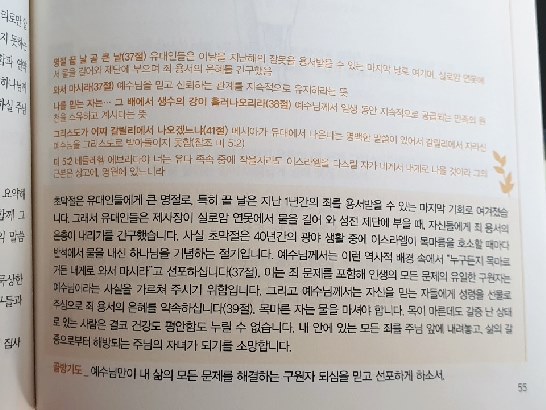 명절 끝 날 곧 큰 날(37절) 유대인들은 이날을 지난해의 잘못을 용서받을 수 있는 마지막 날로 여기며, 실로암 연못에
서 물을 길어와 제단에 부으며 죄 용서의 은혜를 간구했음
와서 마시라(37절) 예수님을 믿고 신뢰하는 관계를 지속적으로 유지하라는 뜻
나를 믿는 자는… 그 배에서 생수의 강이 흘러나오리라(38절) 예수님께서 일생 동안 지속적으로 공급되는 만족의 원
천을 소유하고 계시다는 뜻
그리스도가 어찌 갈릴리에서 나오겠느냐(41절) 메시아가 유다에서 나온다는 명백한 말씀이 있어서 갈릴리에서 자라신
예수님을 그리스도로 받아들이지 못함(참조 미 5:2)
미 5:2 베들레헴 에브라다야 너는 유다 족속 중에 작을지라도 이스라엘을 다스릴 자가 네게서 내게로 나올 것이라 그의
근본은 상고에, 영원에 있느니라
초막절은 유대인들에게 큰 명절로, 특히 끝 날은 지난 1년간의 죄를 용서받을 수 있는 마지막 기회로 여겨졌습
니다. 그래서 유대인들은 제사장이 실로암 연못에서 물을 길어 와 성전 제단에 부을 때, 자신들에게 죄 용서의
은총이 내리기를 간구했습니다. 사실 초막절은 40년간의 광야 생활 중에 이스라엘이 목마름을 호소할 때마다
반석에서 물을 내신 하나님을 기념하는 절기입니다. 예수님께서는 이런 역사적 배경 속에서 “누구든지 목마르
거든 내게로 와서 마시라”고 선포하십니다(37절). 이는 죄 문제를 포함해 인생의 모든 문제의 유일한 구원자는
예수님이라는 사실을 가르쳐 주시기 위함입니다. 그리고 예수님께서는 자신을 믿는 자들에게 성령을 선물로
주심으로 죄 용서의 은혜를 약속하십니다(39절). 목마른 자는 물을 마셔야 합니다. 목이 마른데도 갈증 난 상태
로 있는 사람은 결코 건강도 평안함도 누릴 수 없습니다. 내 안에 있는 모든 죄를 주님 앞에 내려놓고, 삶의 갈
증으로부터 해방되는 주님의 자녀가 되기를 소망합니다.
결단기도 _ 예수님만이 내 삶의 모든 문제를 해결하는 구원자 되심을 믿고 선포하게 하소서.
55
요약해
집사